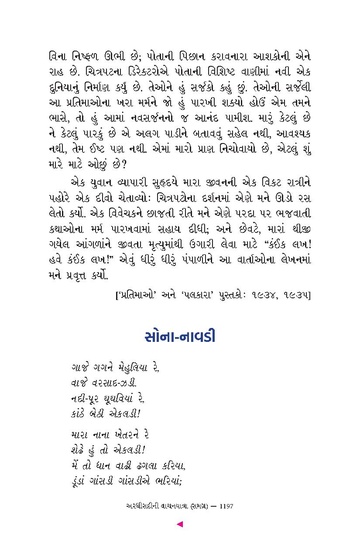 વિના નિષ્ફળ ઊભી છે; પોતાની પિછાન કરાવનારા આશકોની એને
રાહ છે. ચિત્રપટના ડિરેક્ટરોએ પોતાની વિશિષ્ટ વાણીમાં નવી એક
દુનિયાનું નિર્માણ કર્યું છે. તેઓને હું સર્જકો કહું છું. તેઓની સર્જેલી
આ પ્રતિમાઓના ખરા મર્મને જો હું પારખી શક્યો હોઉં એમ તમને
ભાસે, તો હું આમાં નવસર્જનનો જ આનંદ પામીશ. મારું કેટલું છે
ને કેટલું પારકું છે એ અલગ પાડીને બતાવવું સહેલ નથી, આવશ્યક
નથી, તેમ ઈષ્ટ પણ નથી. એમાં મારો પ્રાણ નિચોવાયો છે, એટલું શું
મારે માટે ઓછું છે?
એક યુવાન વ્યાપારી સુહૃદયે મારા જીવનની એક વિકટ રાત્રીને
પહોરે એક દીવો ચેતાવ્યો: ચિત્રપટોના દર્શનમાં એણે મને ઊંડો રસ
લેતો કર્યો. એક વિવેચકને છાજતી રીતે મને એણે પરદા પર ભજવાતી
કથાઓના મર્મ પારખવામાં સહાય દીધી; અને છેવટે, મારાં થીજી
ગયેલ આંગળાંને જીવતા મૃત્યુમાંથી ઉગારી લેવા માટે “કંઈક લખ!
હવે કંઈક લખ!” એવું ધીરું ધીરું પંપાળીને આ વાર્તાઓના લેખનમાં
મને પ્રવૃત્ત કર્યો.
[‘પ્રતિમાઓ’ અને ‘પલકારા’ પુસ્તકો: ૧૯૩૪, ૧૯૩૫]
સોના-નાવડી
ગાજે ગગને મેહુલિયા રે,
વાજે વરસાદ-ઝડી.
નદી-પૂર ઘૂઘવિયાં રે,
કાંઠે બેઠી એકલડી!
મારા નાના ખેતરને રે
શેઢે હું તો એકલડી!
મેં તો ધાન વાઢી ઢગલા કરિયા,
ડૂંડાં ગાંસડી ગાંસડીએ ભરિયાં;
અરધીસદીની વાચનયાત્રા (સમગ્ર) — 1197